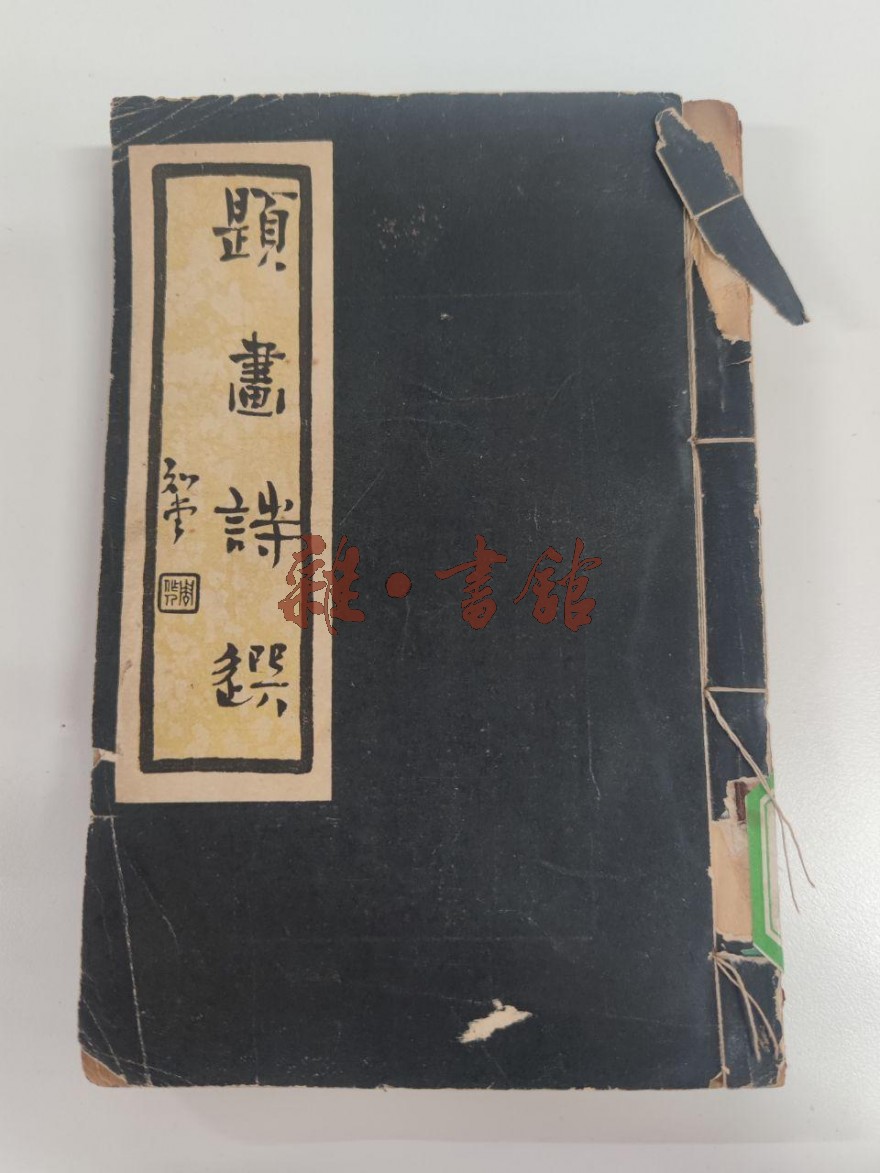 題畫詩選
知堂
雜·書館